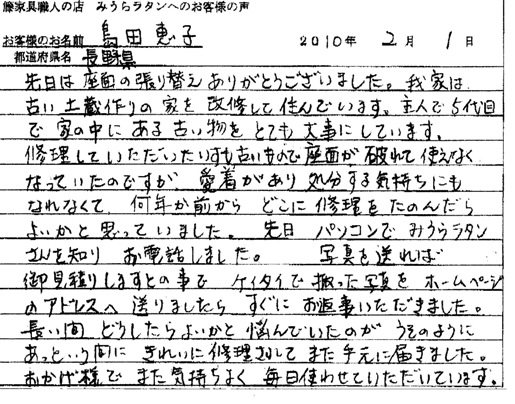 籐家具職人の店　みうらラタンへのお客様の声
お客様のお名前　島田恵子　2010年 2月 1日
都道府県名　長野県
先日は座面の張り替えありがとうございました。我家は
古い土蔵作りの家を改修して住んでいます。主人で5代目
で家の中にある古い物をとても大事にしています。
修理していただいたいすも古いもので座面が破れて使えなく
なっていたのですが、愛着があり処分する気持ちにも
なれなくて、何年か前からどこに修理をたのんだら
よいかと思っていました。先日パソコンでみうらラタン
さんを知りお電話しました。写真を送れば
御見積りしますとの事でケイタイで撮った写真をホームページ
のアドレスへ送りましたらすぐにお返事いただきました。
長い間どうしたらよいかと悩んでいたのがうそのように
あっという間にきれいに修理されてまた手元に届きました。
おかげ様でまた気持ちよく毎日使わせていただいています。